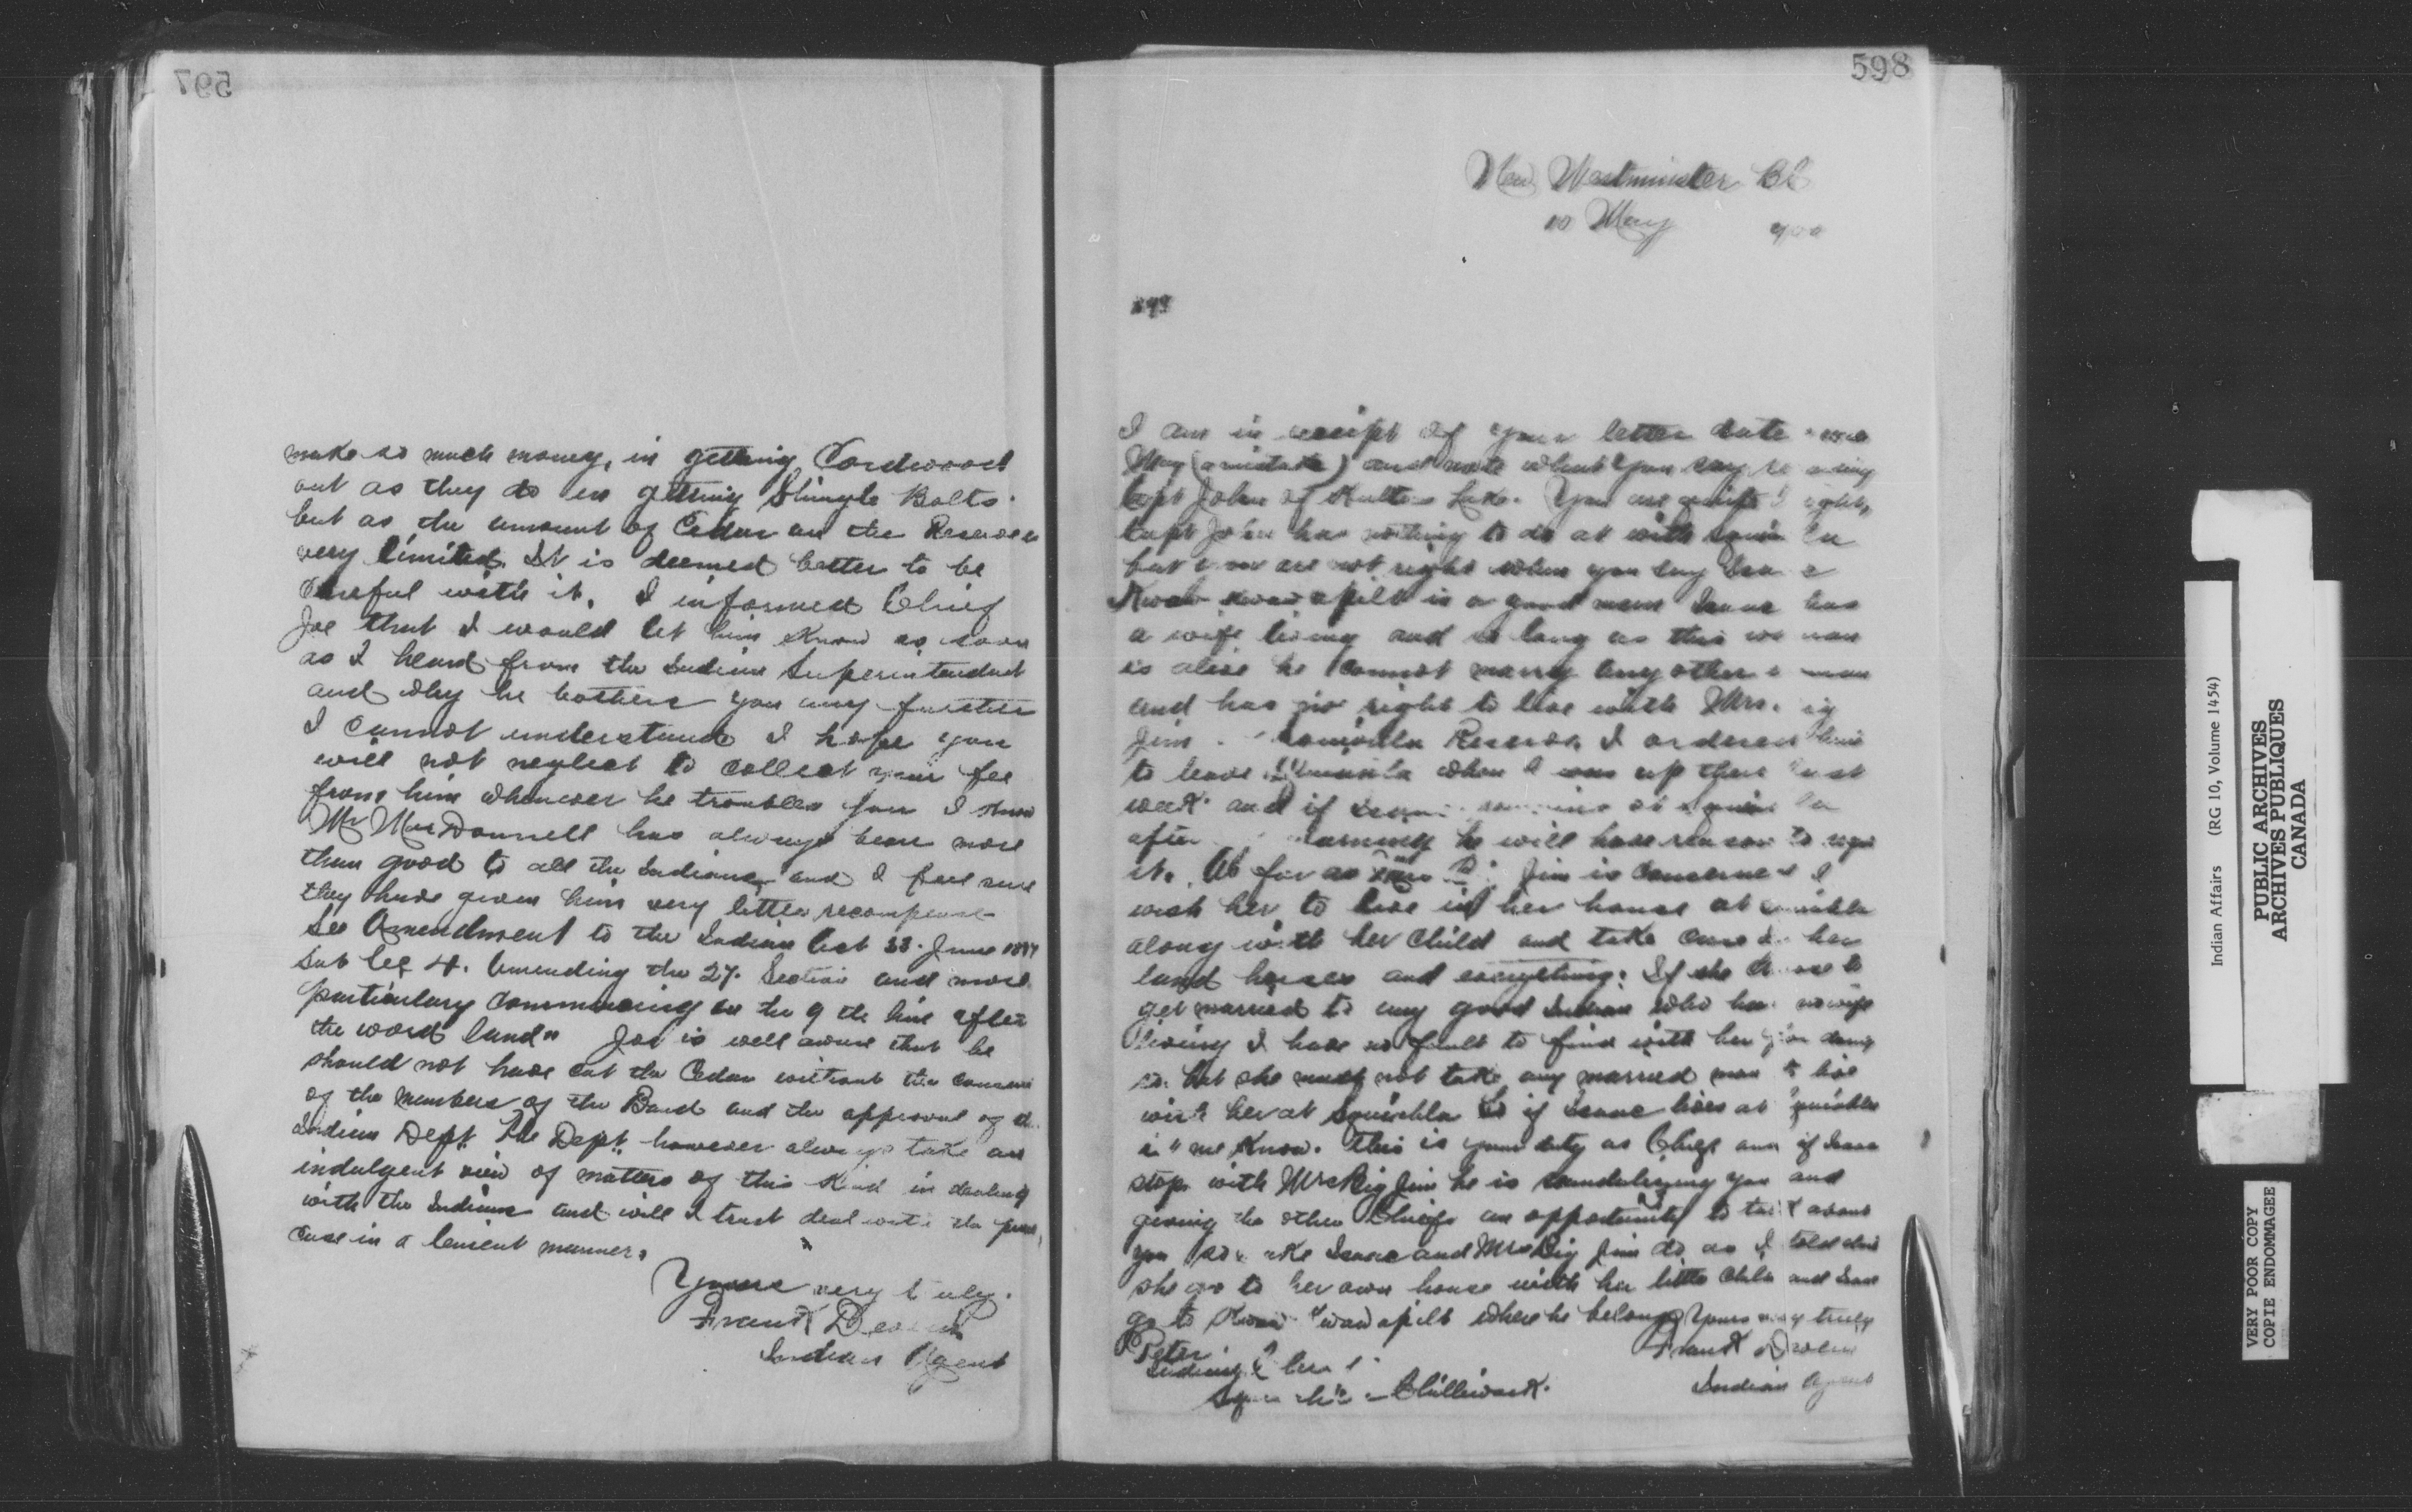 597
make so much money, in getting Cordwood
out as they do in getting Shingle Bolts.
but as the amount of Cedar on the Reserve is
very limited. It is deemed better to be
Careful with it. I informed Chief
Joe that I would let him know as soon
as I heard from the Indian Superintendent
and why he bothers you any further
I cannot understand I hope you
will not neglect to collect your fee
from him whenever he troubles you I know
Mr MacDonnell has always been more
than good to all the Indians and I feel sure
they have given him very little recompense
See Amendment to the Indian Act June
Sub Sec 4. Amending the 27. Section and more
particulary Commencing on the 9 the line after
the word land" Joe is well aware that he
should not have cut the Cedar without the consent
of the members of the Band and the approval of
Indian Dept. The Dept. however always take an
indulgent view of matters of this Kind in dealing
with the Indians and will I trust deal with the
Case in a lenient manner.
Yours very t uly.
Frank Dev
Indian Agent
598
New Westminster BC
10 May 900
I am in receipt of your letter date
May (a mistake) and note what you say re
Capt John of Kultus Lake. You are quite right,
Capt John has nothing to do at with
but you are not right when you say
is a good man Isaac has
a wife living and so long as this wo man
is alive he Cannot marry any other
and has no right to live with Mrs.
Jim Reserve, I ordered him
to leave when I was up there last
week. and if at
after warning he will have reason to
it. As far as Mrs B Jim is Concerned I
wish her to live in her house at
along with her Child and take care of her
land horses and everything. If she
get married to any good Indian who has no wife
living I have no fault to find with her for doing
so. but she must not take any married man to live
with her at Squiahla So if Isaac lives at
me Know. This is your duty as Chief and if Isaac
stop with Mrs Big Jim he is scandalizing you and
giving the other Chiefs an opportunity to talk about
you so Isaac and Mrs Big Jim do as I told
she go to her own house with her little Child and Isaac
go to where he belongs Yours very truly
Peter
Indian Frank Dev
Chilliwack. Indian Agent
Indian Affairs (RG 10, Volume 1454)
PUBLIC ARCHIVES
ARCHIVES PUBLIQUES
CANADA
VERY POOR COPY
COPIE ENDOMMAGEE